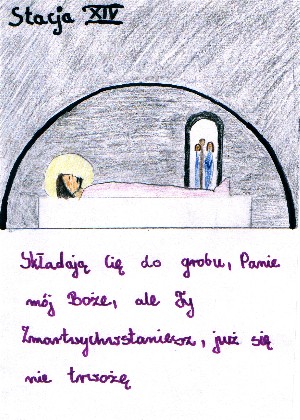 Stacja XIV
Składają Cię do grobu, Panie
mój Boże, ale Ty
Zmartwychwstaniesz, już się
nie trwożę